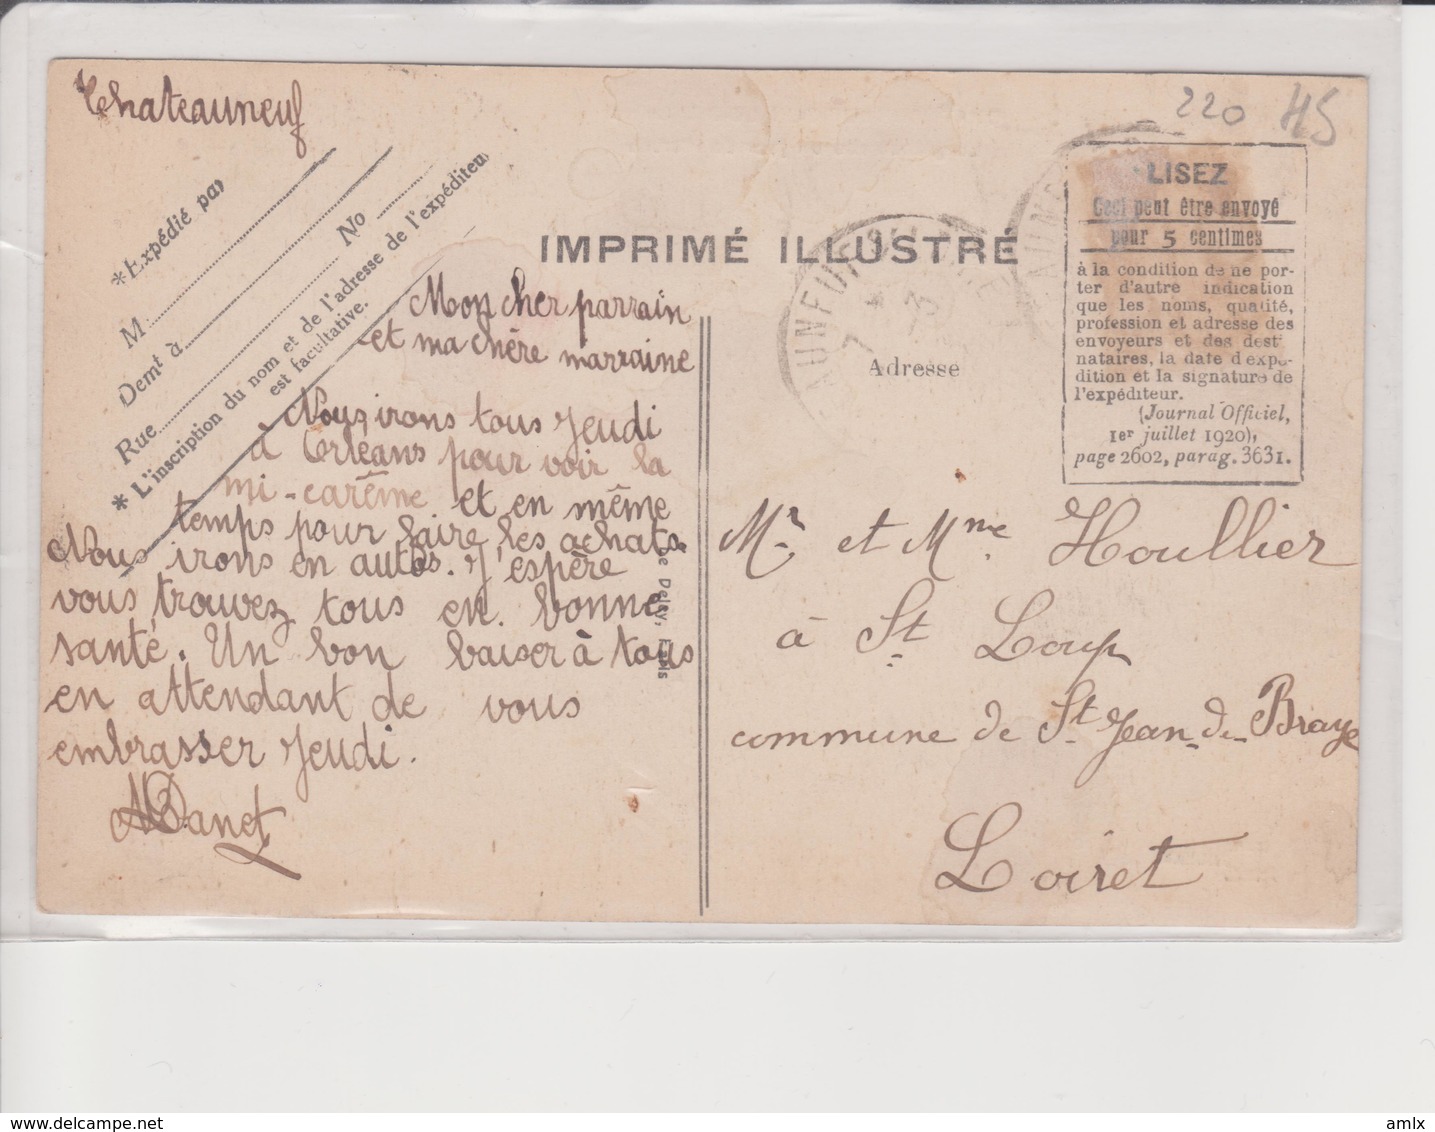 Chateauneuf
220 HS
*Expédié par
M
Demt à No
Rue
* L'inscription du nom et de l'adresse de l'expéditeur
est facultative.
IMPRIMÉ ILLUSTRÉ
LISEZ
Ceci peut être envoyé
pour 5 centimes
à la condition de ne por-
ter d'autre indication
que les noms, qualité,
profession et adresse des
envoyeurs et des desti
nataires, la date d'expé-
dition et la signature de
l'expéditeur.
(Journal Officiel,
1er juillet 1920),
page 2602, parag. 3631.
Adresse
Mon cher parrain
et ma chère marraine
Nous irons tous jeudi
à Orléans pour voir la
mi-carême et en même
temps pour faire les achats.
Nous irons en autos. J'espère
vous trouvez tous en bonne
santé. Un bon baiser à tous
en attendant de vous
embrasser jeudi.
Danet
Mr et Mme Houllier
à St Loup
commune de St Jean de Braye
Loiret
amlx